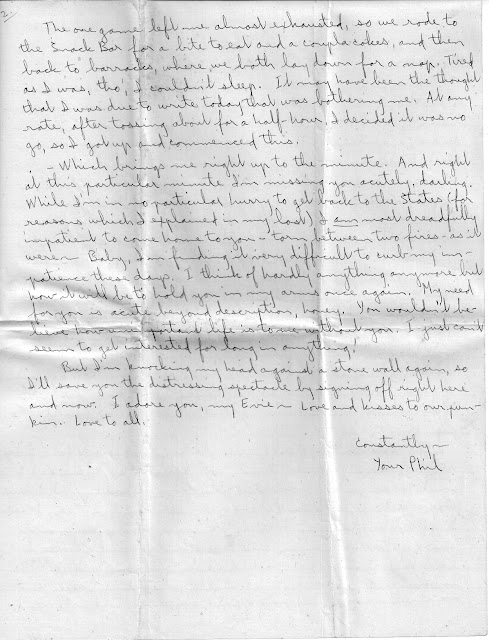 2.
The one game left me almost exhausted, so we rode to
the Snack Bar for a bite to eat and a coupla cokes, and then
back to barracks, where we both lay down for a nap. Tired
as I was, tho', I couldn't sleep. It may have been the thought
that I was due to write today that was bothering me. At any
rate, after tossing about for a half-hour, I decided it was no
go, so I got up and commenced this.
- Which brings me right up to the minute. And right
at this particular minute I'm missing you acutely, darling.
While I'm in no particular hurry to get back to the States (for
reasons which I explained in my last) I am most dreadfully
impatient to come home to you - torn between two fires - as it
were. Baby, I'm finding it very difficult to curb my im-
patience these days. I think of hardly anything anymore but
how it will be to hold you in my arms once again. My need
for you is acute beyond description, honey. You wouldn't be-
lieve how life is to me without you. I just can't
seem to get interested for long in anything!
But I'm knocking my head against a stone wall again, so
I'll save you the distressing spectacle by signing off right here
and now. I adore you, my Evie - Love and kisses to our pun-
kin. Love to all.
Constantly -
Your Phil